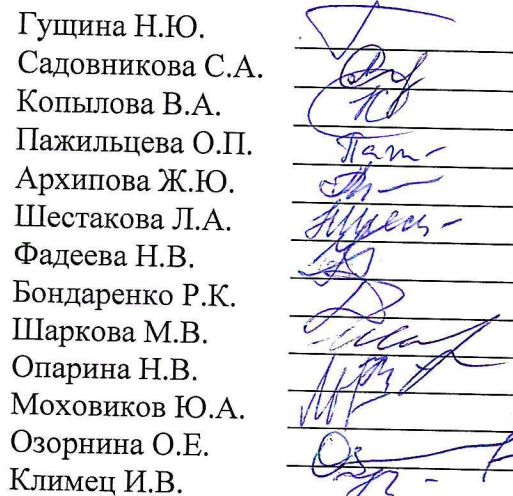 Гущина Н.Ю.
Садовникова С.А.
Копылова В.А.
Пажильцева О.П.
Архипова Ж.Ю.
Шестакова Л.А.
Фадеева Н.В.
Бондаренко Р.К.
Шаркова М.В.
Опарина Н.В.
Моховиков Ю.А.
Озорнина О.Е.
Климец И.В.